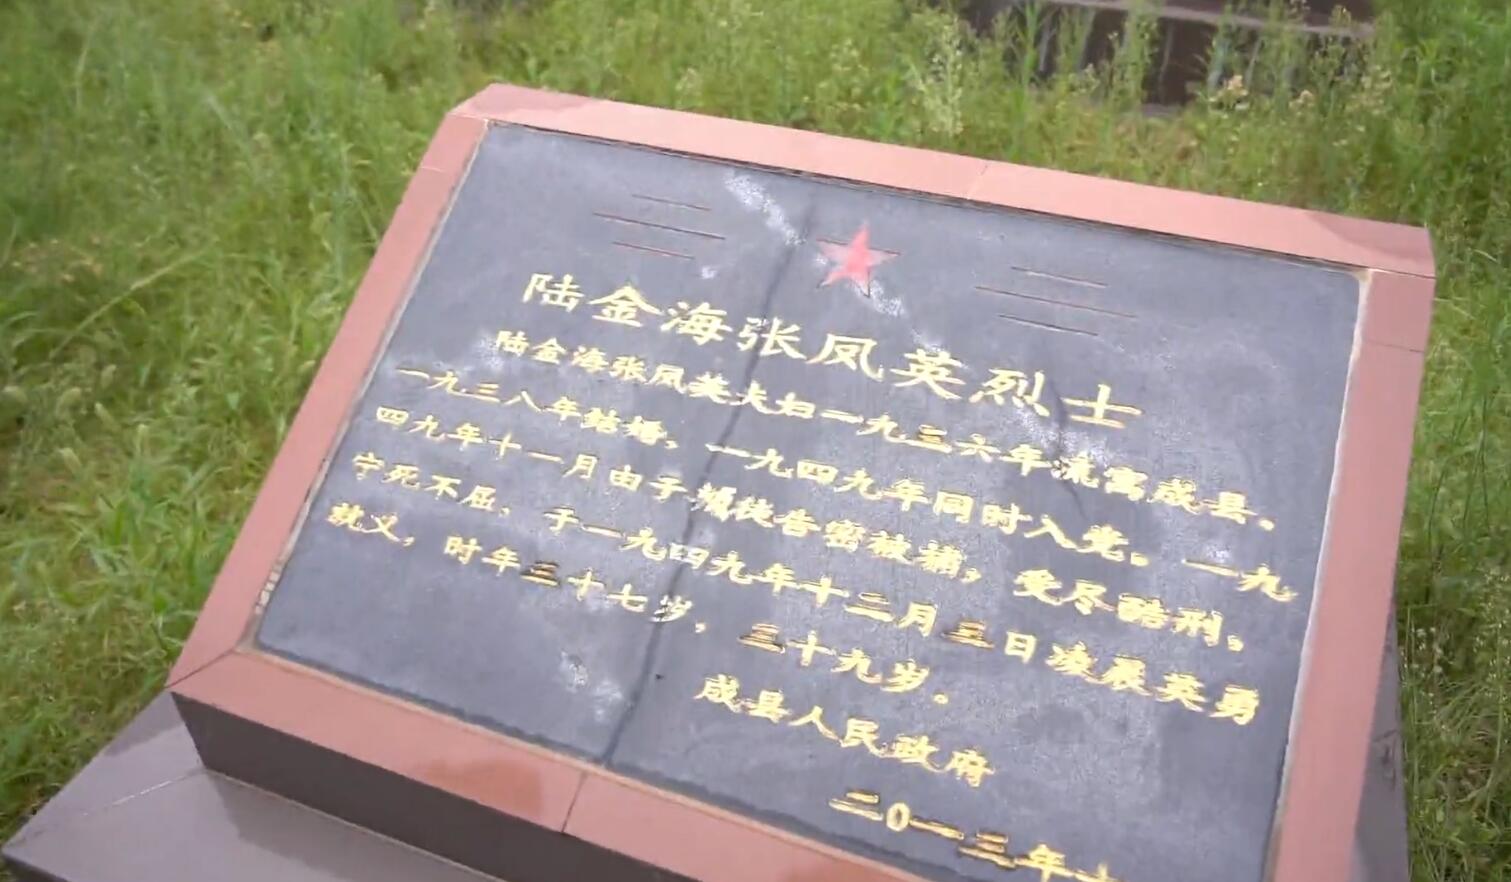 陆金海张凤英烈士
陆金海张凤英夫妇一九三六年流寓成县。
一九三八年结婚，一九四九年同时入党。一九
四九年十一月由于叛徒告密被捕，受尽酷刑，
宁死不屈，于一九四九年十二月三日凌晨英勇
就义，时年三十七岁，三十九岁。
成县人民政府
二0一三年十